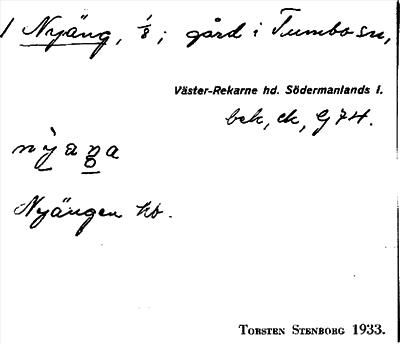 1 Nyäng, 1/8; gård i Tumbo sn,
Väster-Rekarne hd. Södermanlands l.
bek, ek, G 74.
Nyängen kb.
TORSTEN STENBORG 1933.